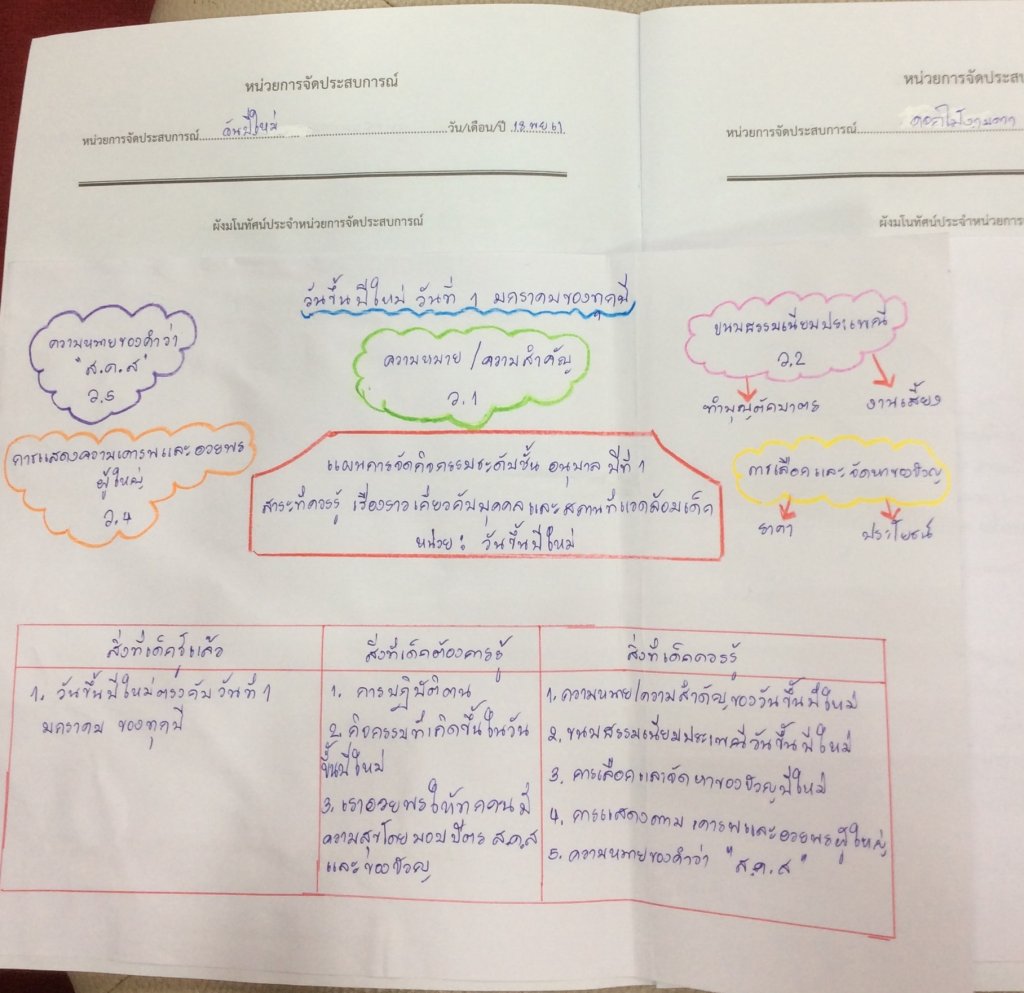 หน่วยการจัดประสบการณ์
หน่วยการจัดประสบการณ์ วันปีใหม่ วัน/เดือน/ปี 18 พย 61
ผังมโนทัศน์ประจำหน่วยการจัดประสบการณ์
หน่วยการจัดประสบ
หน่วยการจัดประสบการณ์
ผังมโนทัศน์ประจำหน่วยการ
วันขึ้นปีใหม่ วันที่ 1 มกราคมของทุกปี
ความหมายของคำว่า
"ส.ค.ส"
ว.5
ความหมาย/ความสำคัญ
ว.1
ขนบธรรมเนียมประเพณี
ว.2
ทำบุญตักบาตร
งานเลี้ยง
การแสดงความเคารพและอวยพร
ผู้ใหญ่
ว.4
แผนการจัดกิจกรรมระดับชั้น อนุบาล ปีที่ 1
สาระที่ควรรู้ เรื่องราวเกี่ยวกับบุคคลและสถานที่แวดล้อมเด็ก
หน่วย : วันขึ้นปีใหม่
การเลือกและจัดหาของขวัญ
ราคา
ประโยชน์
สิ่งที่เด็กรู้แล้ว
1. วันขึ้นปีใหม่ตรงกับวันที่ 1
มกราคม ของทุกปี
สิ่งที่เด็กต้องการรู้
1. การปฏิบัติตน
2. กิจกรรมที่เกิดขึ้นในวัน
ขึ้นปีใหม่
3. เราอวยพรให้ทุกคนมี
ความสุขโดยมอบบัตร ส.ค.ส
และของขวัญ
สิ่งที่เด็กควรรู้
1. ความหมาย/ความสำคัญของวันขึ้นปีใหม่
2. ขนบธรรมเนียมประเพณีวันขึ้นปีใหม่
3. การเลือกและจัดหาของขวัญปีใหม่
4. การแสดงความเคารพและอวยพรผู้ใหญ่
5. ความหมายของคำว่า "ส.ค.ส"